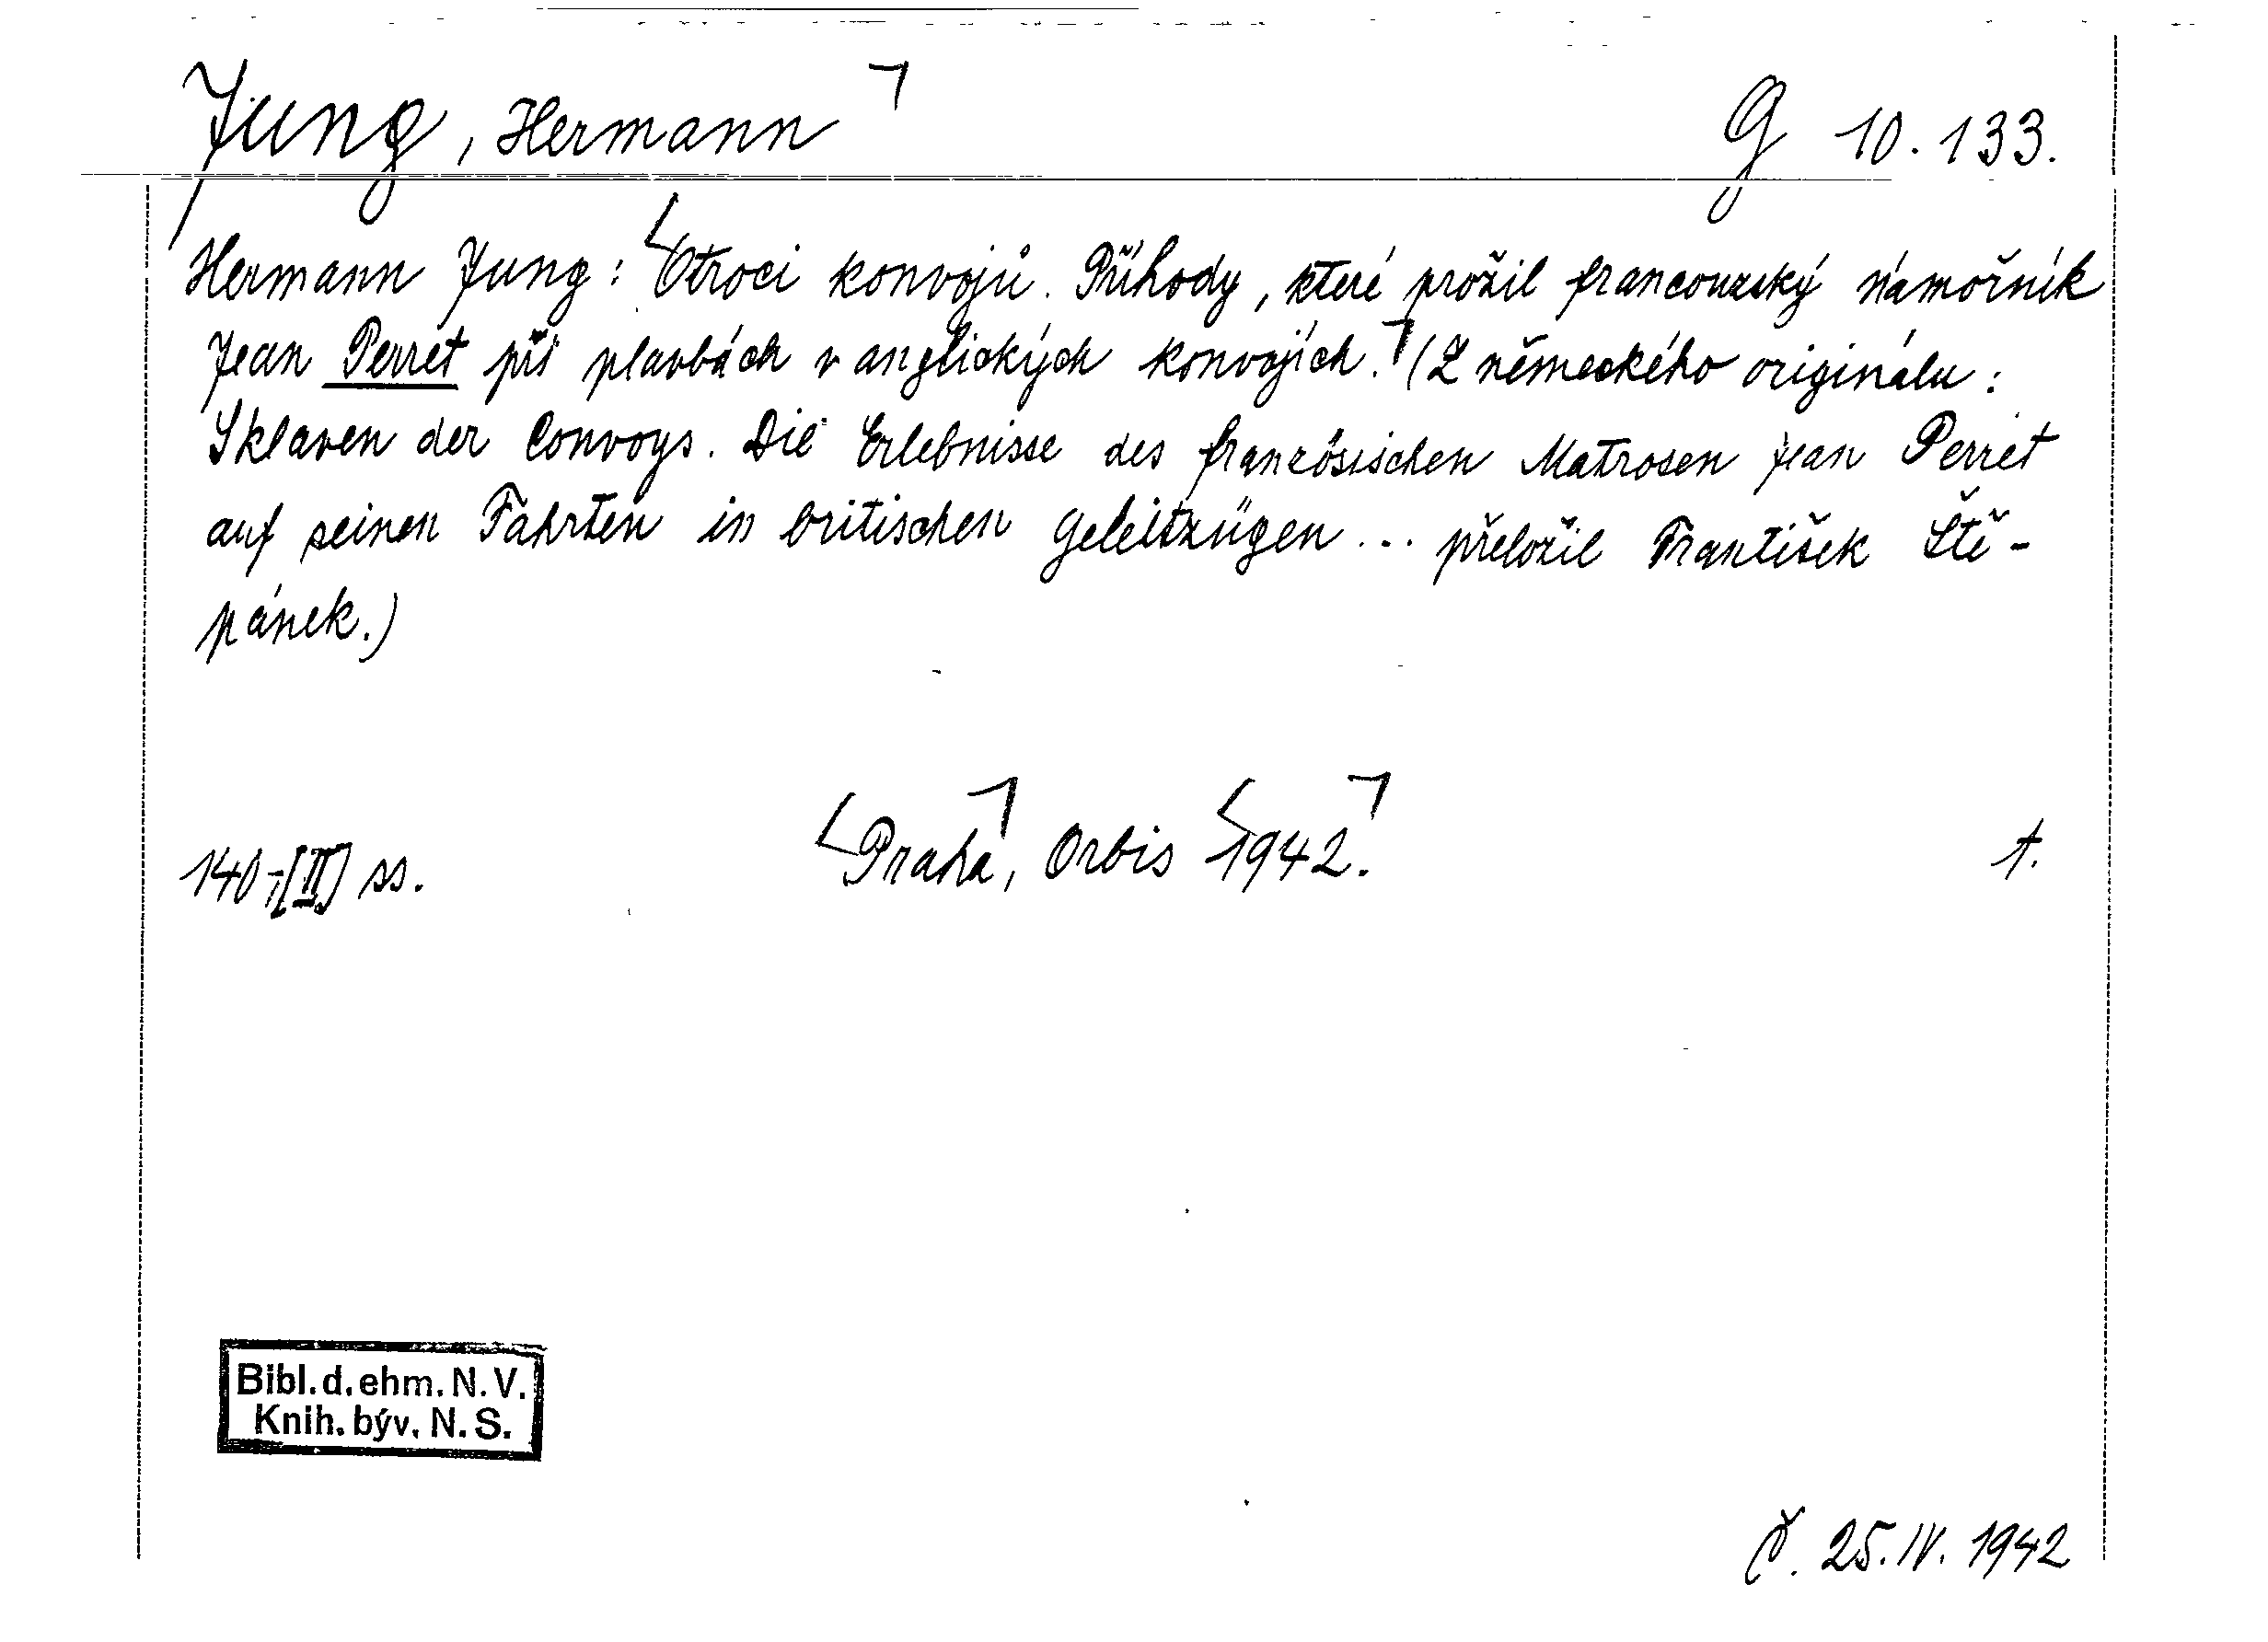 Jung, Hermann G 10.133.
Hermann Jung: Otroci konvojů. Příhody, které prožil francouzský námořník
Jean Perret při plavbách v anglických konvojích. (Z německého originálu:
Sklaven der Convoys. Die Erlebnisse des französischen Matrosen Jean Perret
auf seinen Fahrten in britischen Geleitzügen... přeložil František Ště-
pánek.)
140-[II] ss. Praha, Orbis 1942. t.
Bibl. d. ehm. N. V.
Knih. býv. N. S.
Č. 25. IV. 1942